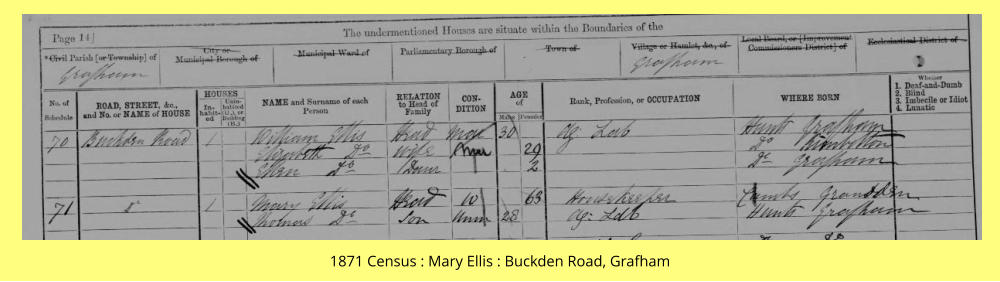 Page 14]
The undermentioned Houses are situate within the Boundaries of the
*Civil Parish [or Township] of
City or
Municipal Borough of
Municipal Ward of
Parliamentary Borough of
Town of
Village or Hamlet, &c., of
Local Board, or [Improvement
Commissioners District] of
Ecclesiastical District of
Grafham
Grafham
No. of
Schedule
ROAD, STREET, &c.,
and No. or NAME of HOUSE
HOUSES
In-
habit-
ed
Unin-
habited
(U.), or
Building
(B.)
NAME and Surname of each
Person
RELATION
to Head of
Family
CON-
DITION
AGE
of
Males
Females
Rank, Profession, or OCCUPATION
WHERE BORN
Whether
1. Deaf-and-Dumb
2. Blind
3. Imbecile or Idiot
4. Lunatic
70 Buckden Road 1 William Ellis Head Mar 30 Ag: Lab Hunts Grafham
Elizabeth Do Wife Mar 29 Do Kimbolton
Ellen Do Daur 2 Do Grafham
71 1 Mary Ellis Head W 63 Housekeeper Cambs
Thomas Do Son Unm 28 Ag: Lab Hunts Grafham
1871 Census : Mary Ellis : Buckden Road, Grafham